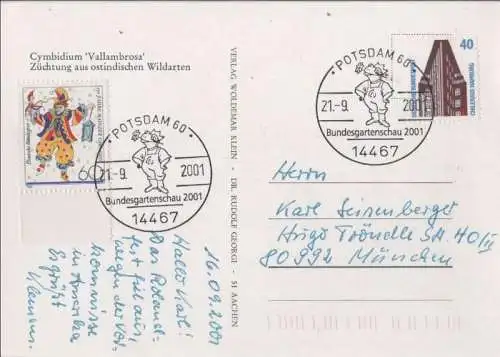 Cymbidium 'Vallambrosa'
Züchtung aus ostindischen Wildarten
VERLAG WOLDEMAR KLEIN · DR. RUDOLF GEORGI · 51 AACHEN
60
POTSDAM 60
21.-9. 2001
Bundesgartenschau 2001
14467
40
POTSDAM 60
21.-9. 2001
Bundesgartenschau 2001
14467
Herrn
Karl
Hugo Str. 40/II
80992 München
16.09.2001
Hallo Karl!
Das Roland-
fest fiel aus
wegen der Vor-
kommnisse
in Amerika
Es grüßt
Klemens.